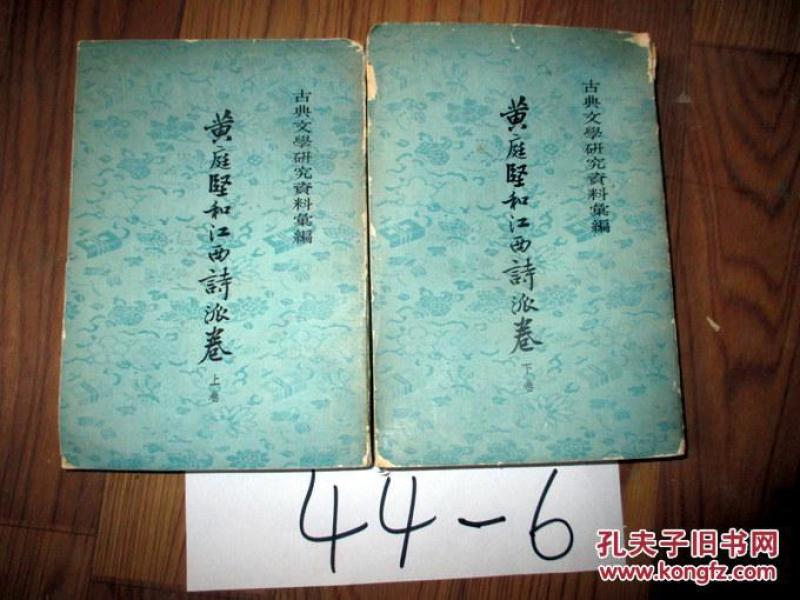 古典文學研究資料彙編
黃庭堅和江西詩派卷
上卷
古典文學研究資料彙編
黃庭堅和江西詩派卷
下卷
44-6
孔夫子旧书网
www.kongfz.com